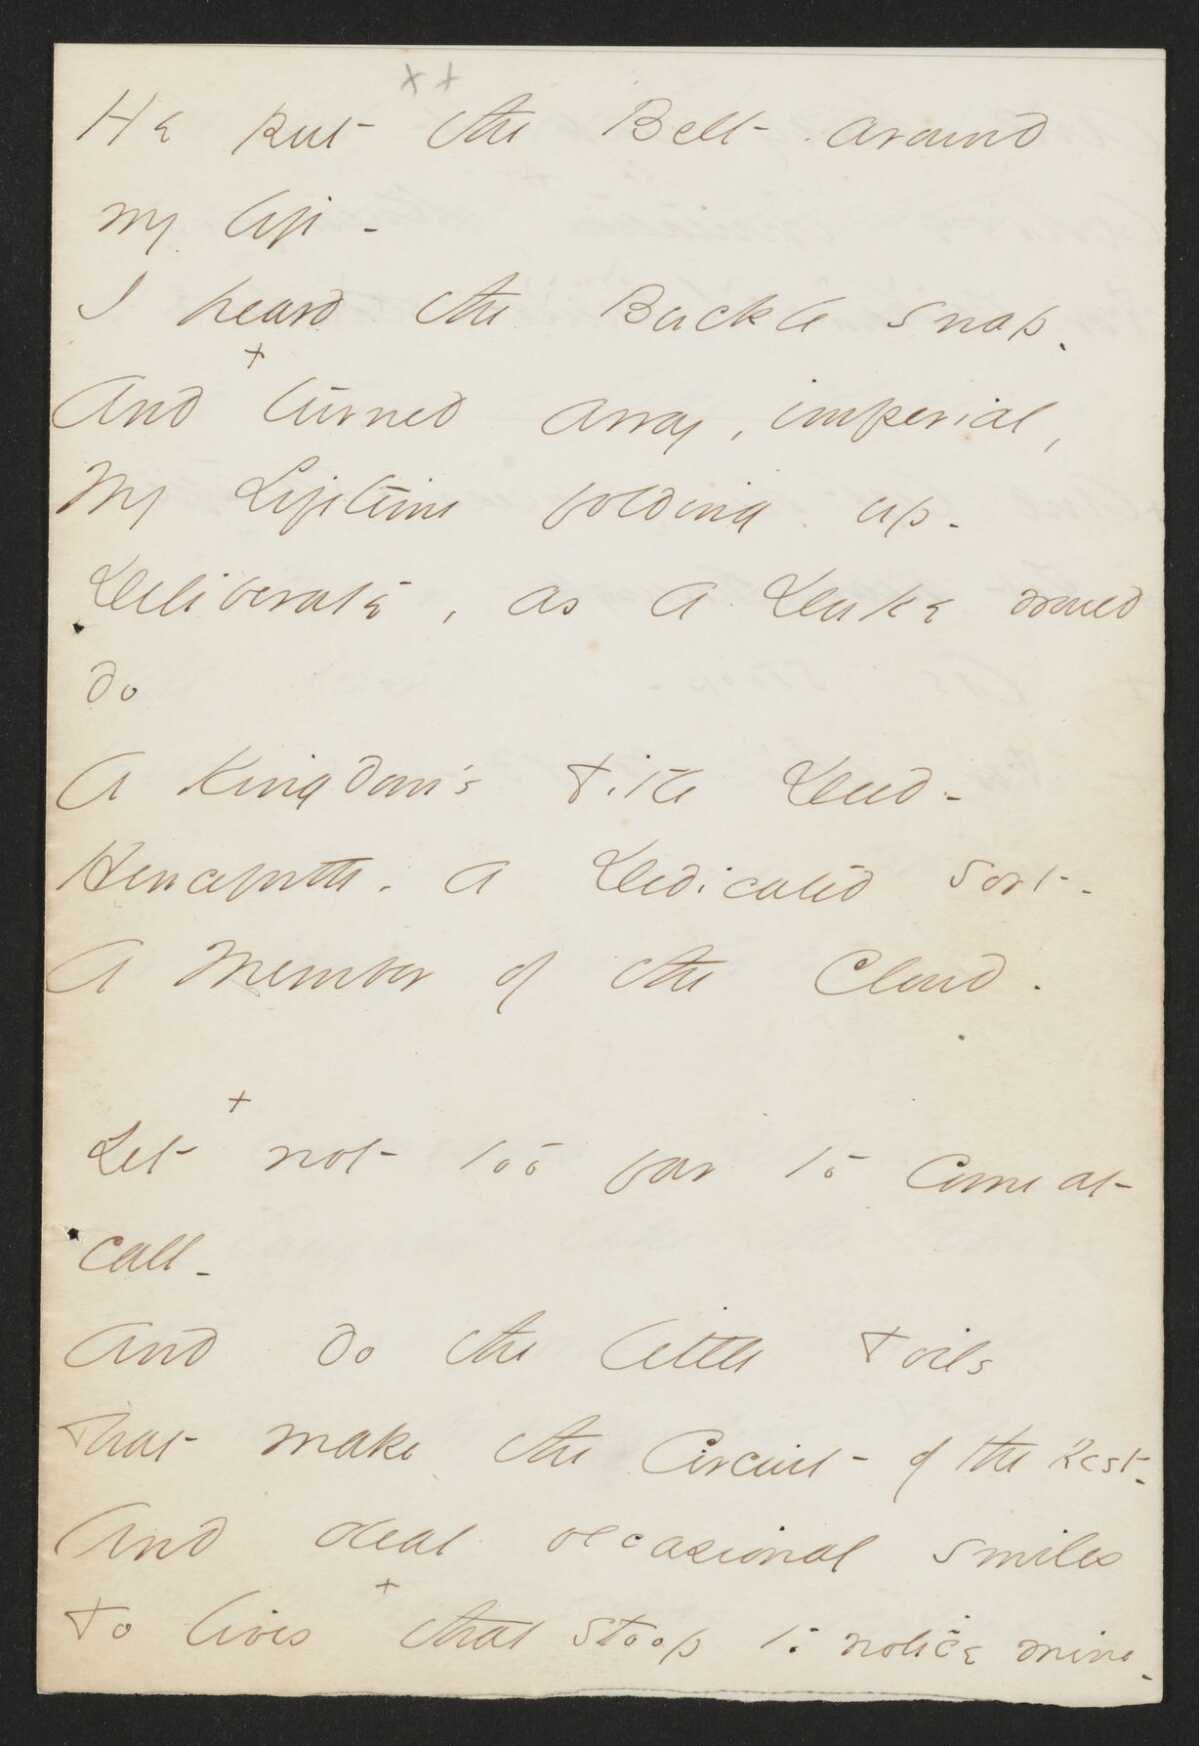 x +
He put the Belt around
my life -
I heard the Buckle snap -
+
And turned away, imperial,
My Lifetime folding up -
Deliberate, as a Duke would
do
A Kingdom's Title Deed -
Henceforth - a Dedicated sort -
A Member of the Cloud.
+
Yet not too far to come at
call -
And do the little Toils
That make the Circuit of the Rest -
And deal occasional smiles
+
To lives that stoop to notice mine -